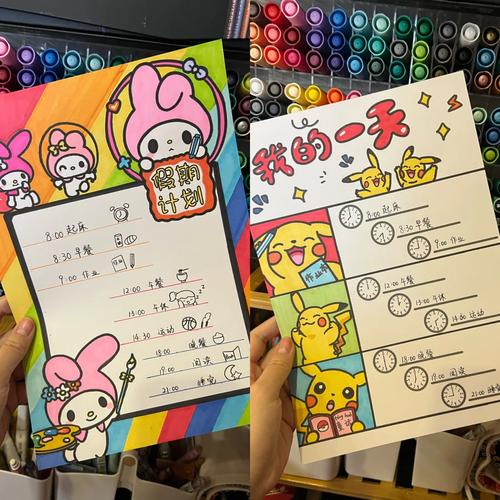 假期
计划
8:00 起床
8:30 早餐
9:00 作业
12:00 午餐
13:00 午休
14:30 运动
18:00 晚餐
19:00 阅读
21:00 睡觉
我的一天
8:00 起床
8:30 早餐
9:00 作业
12:00 午餐
13:00 午休
14:30 运动
18:00 晚餐
19:00 阅读
21:00 睡觉
作业本